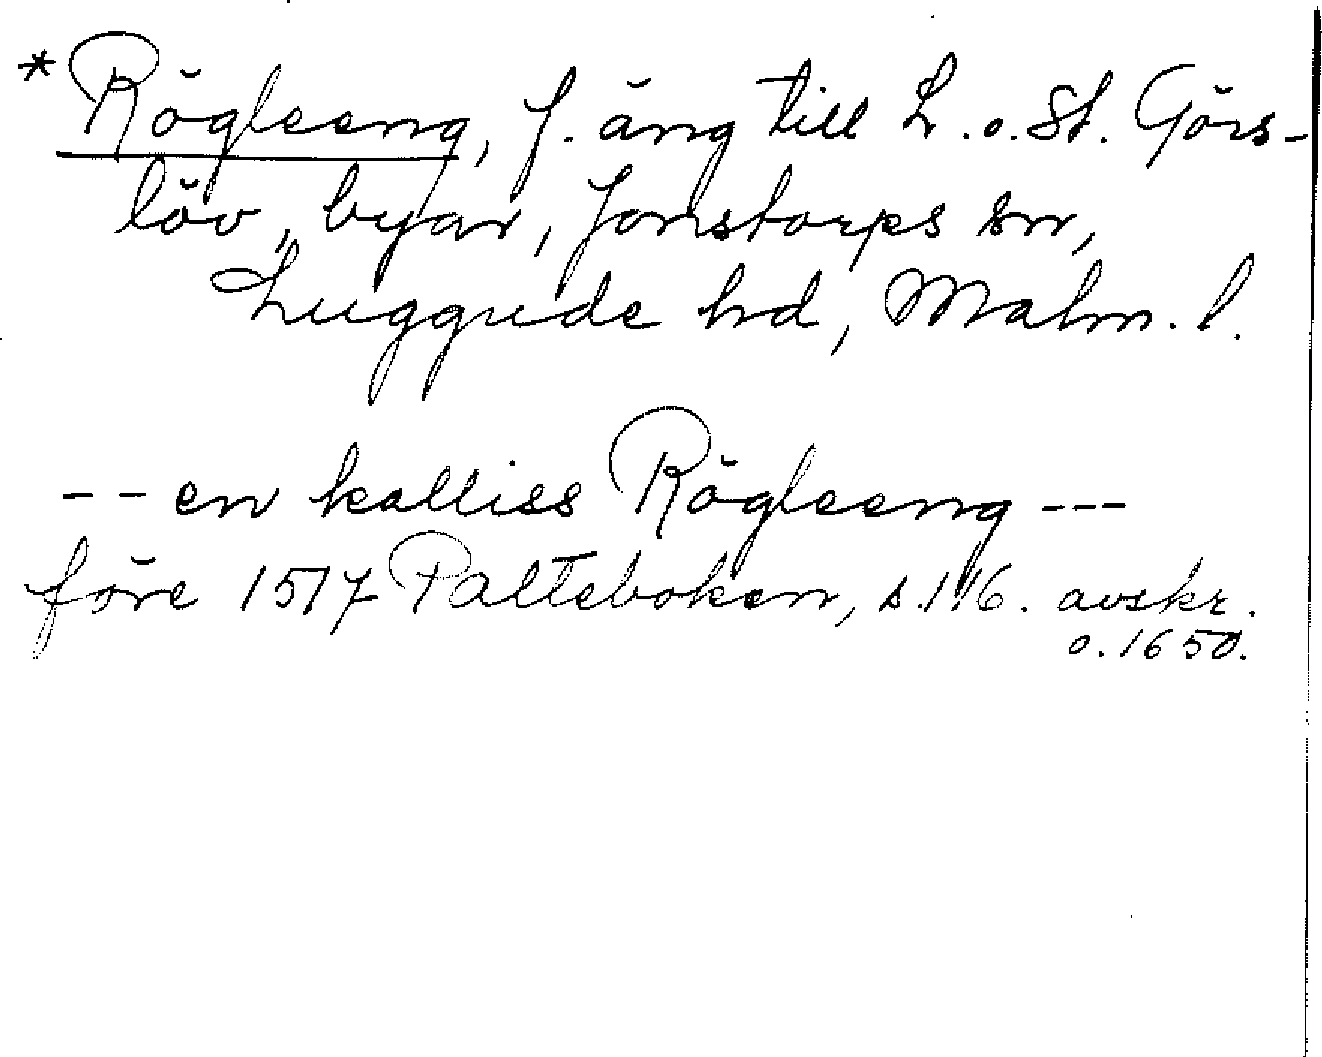 *Rögleeng, f. äng till L. o. St. Görs-
löv, byar, Jonstorps sn,
Luggude hd, Malm. l.
-- en kalliss Rögleeng ---
före 1517 Palteboken, s. 116. avskr.
o. 1650.